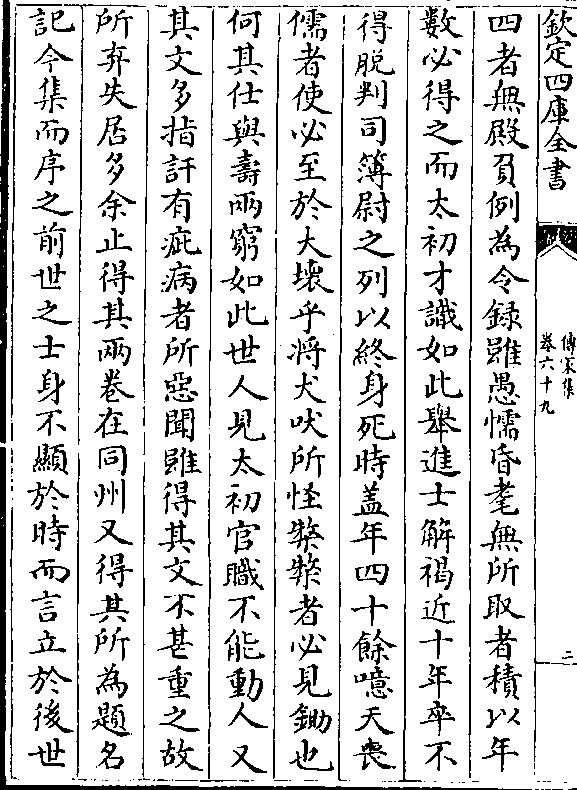 欽定四庫全書
傳家集
卷六十九
二
四者無殿負例為令録雖愚懦昏耄無所取者積以年
數必得之而太初才識如此舉進士解褐近十年卒不
得脱判司簿尉之列以終身死時盖年四十餘噫天喪
儒者使必至於大壞乎將犬吠所怪桀桀者必見鋤也
何其仕與壽兩窮如此世人見太初官職不能動人又
其文多指訐有疵病者所惡聞雖得其文不甚重之故
所弃失居多余止得其兩卷在同州又得其所為題名
記今集而序之前世之士身不顯於時而言立於後世